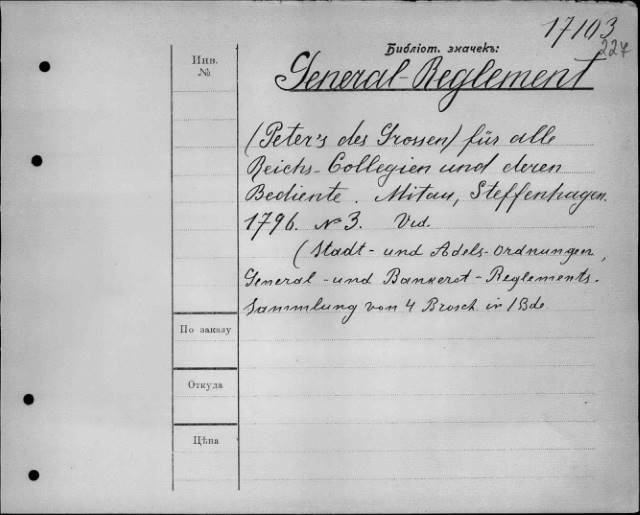 17103
227
Библіот. значекъ:
Инв.
№
General-Reglement
(Peter's des Grossen) für alle
Reichs-Collegien und deren
Bediente. Mitau, Steffenhagen.
1796. № 3. Vid.
(Stadt- und Adels-Ordnungen,
General- und Bankerot-Reglements.
Sammlung von 4 Brosch. in 1 Bde
По заказу
Откуда
Цѣна